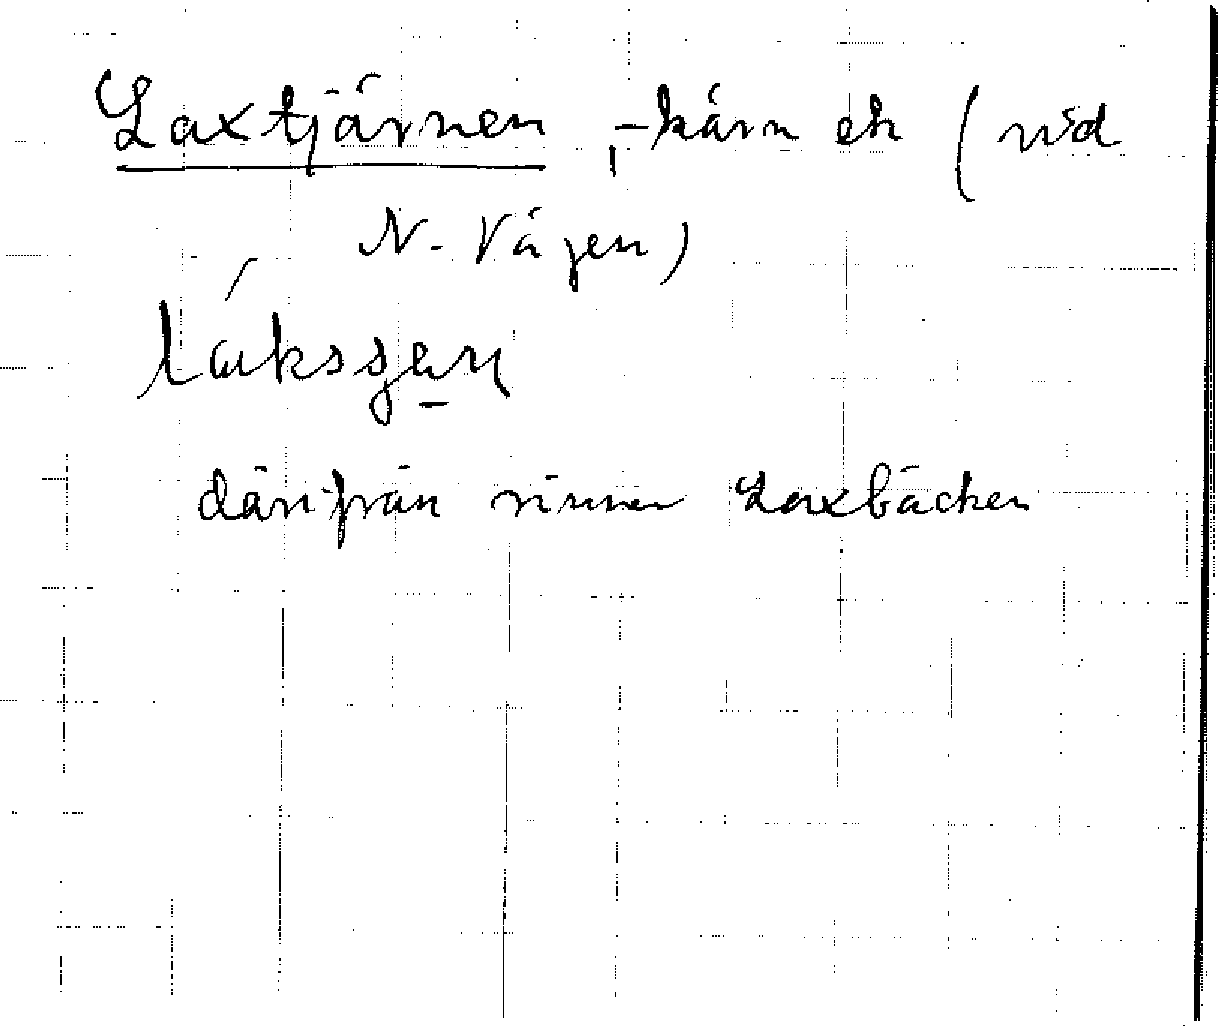 Laxtjärnen, -kärn ek (vid
N. Vågen)
därifrån rinner Laxbäcken